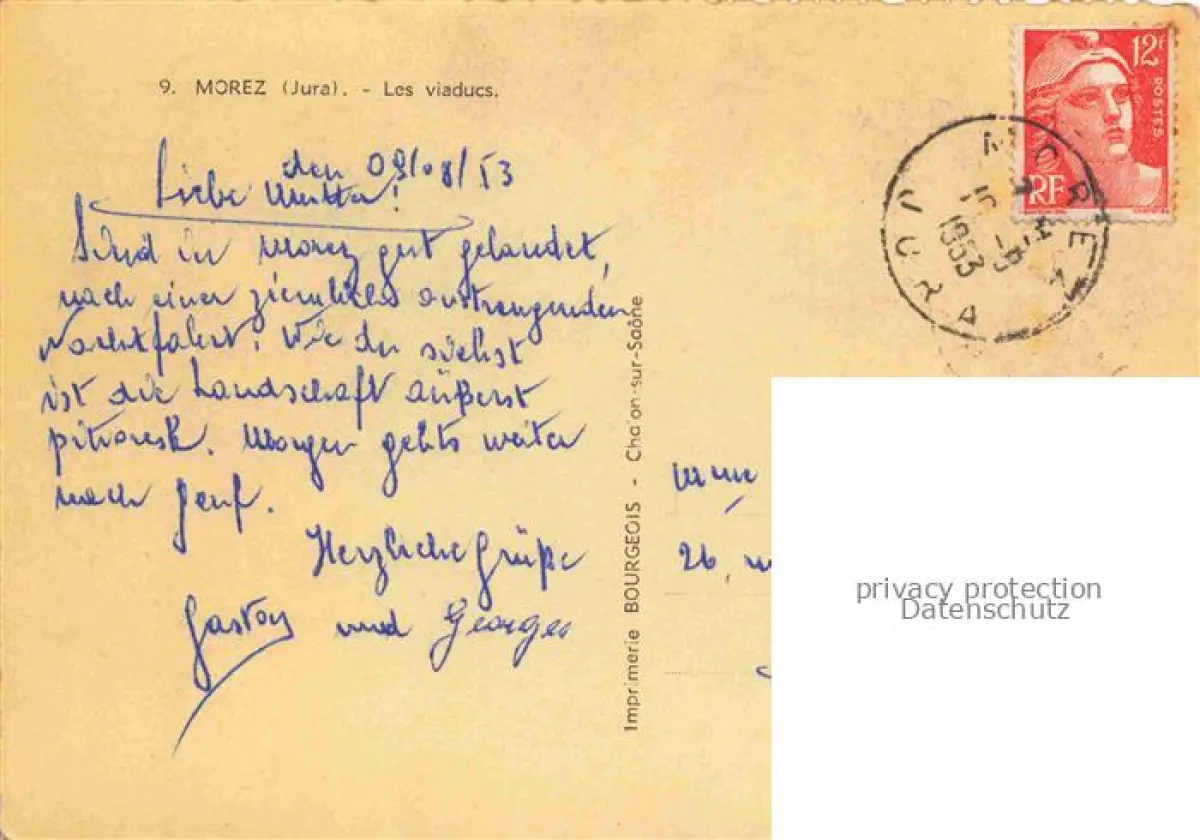 9. MOREZ (Jura). - Les viaducs.
den 09/08/53
Liebe Mutter!
Sind in Morez gut gelandet,
nach einer ziemlich anstrengenden
Nachtfahrt. Wie du siehst
ist die Landschaft äußerst
pittoresk. Morgen gehts weiter
nach Genf.
Herzliche Grüße
Gaston und Georges
Imprimerie BOURGEOIS - Chalon-sur-Saône
12F
POSTES
RF
MOREZ
1953
JURA
Mme
26,
privacy protection
Datenschutz